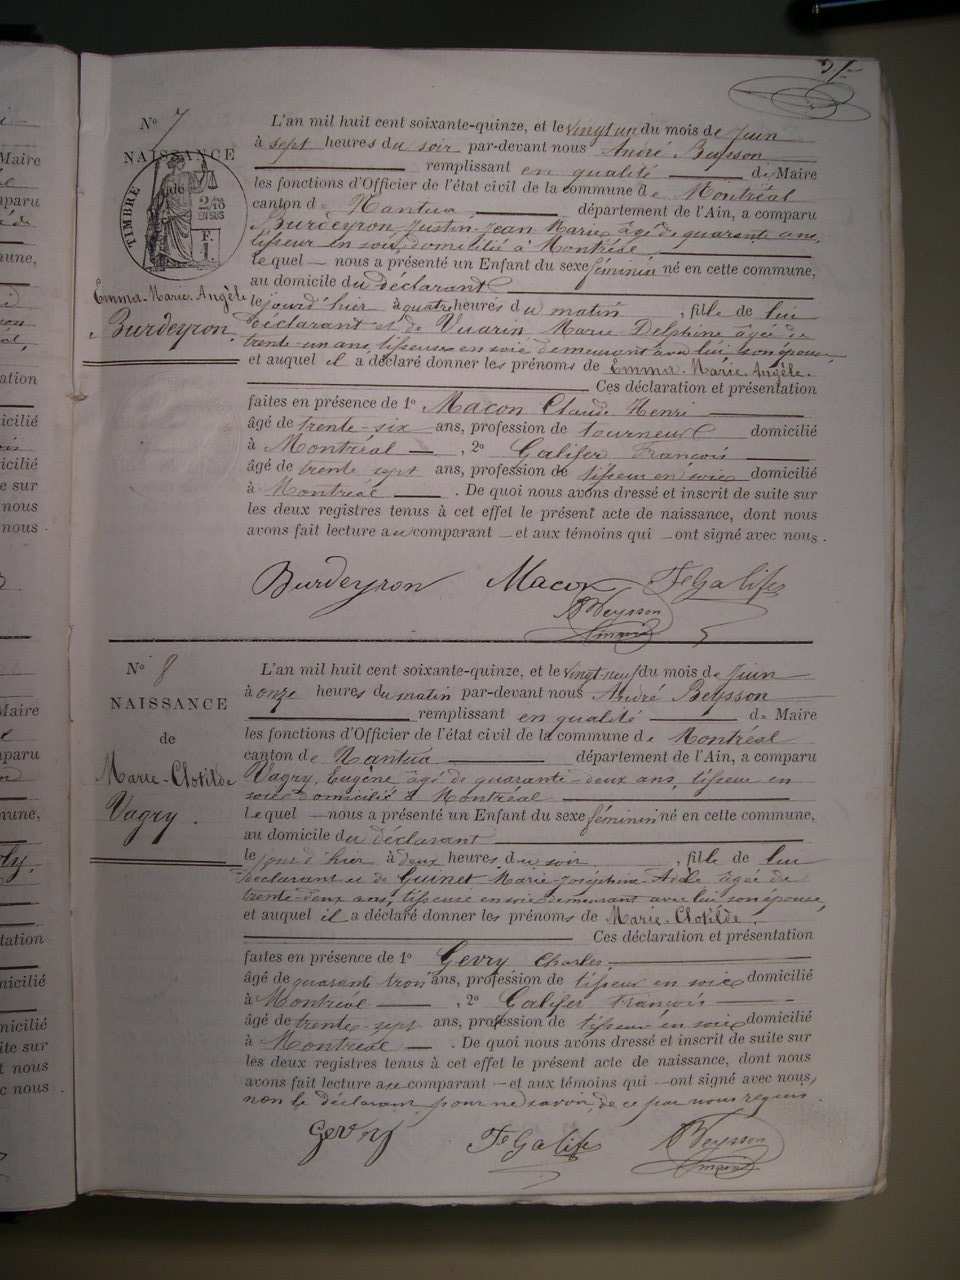 Nº 7
NAISSANCE
de
TIMBRE
2/10
EN SUS
F.
1.
Emma-Marie-Angèle
Burdeyron.
L'an mil huit cent soixante-quinze, et le vingt un du mois de Juin
à sept heures du soir par-devant nous André Beysson
remplissant en qualité de Maire
les fonctions d'Officier de l'état civil de la commune de Montréal
canton de Nantua, département de l'Ain, a comparu
Burdeyron Justin Jean Marie, âgé de quarante ans,
tisseur en soie, domicilié à Montréal
lequel nous a présenté un Enfant du sexe féminin né en cette commune,
au domicile du déclarant
le jourd'hier à quatre heures du matin, fille de lui
déclarant et de Vuarin Marie Delphine âgée de
trente un ans, tisseuse en soie demeurant avec lui son épouse
et auquel il a déclaré donner les prénoms de Emma-Marie-Angèle.
Ces déclaration et présentation
faites en présence de 1º Macon Claude Henri
âgé de trente-six ans, profession de tourneur domicilié
à Montréal, 2º Galifer François
âgé de trente sept ans, profession de tisseur en soie domicilié
à Montréal. De quoi nous avons dressé et inscrit de suite sur
les deux registres tenus à cet effet le présent acte de naissance, dont nous
avons fait lecture au comparant et aux témoins qui ont signé avec nous.
Burdeyron Macon Fs Galifer
Beysson
maire
Nº 8
NAISSANCE
de
Marie-Clotilde
Vagry.
L'an mil huit cent soixante-quinze, et le vingt neuf du mois de Juin
à onze heures du matin par-devant nous André Beysson
remplissant en qualité de Maire
les fonctions d'Officier de l'état civil de la commune de Montréal
canton de Nantua département de l'Ain, a comparu
Vagry, Eugène âgé de quarante-deux ans, tisseur en
soie domicilié à Montréal
lequel nous a présenté un Enfant du sexe féminin né en cette commune,
au domicile du déclarant
le jourd'hier à deux heures du soir, fille de lui
déclarant et de Guinet Marie-Joséphine Adèle âgée de
trente-deux ans, tisseuse en soie demeurant avec lui son épouse,
et auquel il a déclaré donner les prénoms de Marie-Clotilde.
Ces déclaration et présentation
faites en présence de 1º Gevry Charles,
âgé de quarante trois ans, profession de tisseur en soie domicilié
à Montréal, 2º Galifer François
âgé de trente-sept ans, profession de tisseur en soie domicilié
à Montréal. De quoi nous avons dressé et inscrit de suite sur
les deux registres tenus à cet effet le présent acte de naissance, dont nous
avons fait lecture au comparant et aux témoins qui ont signé avec nous,
non le déclarant pour ne savoir de ce par nous requis.
Gevry Fs Galifer Beysson
maire